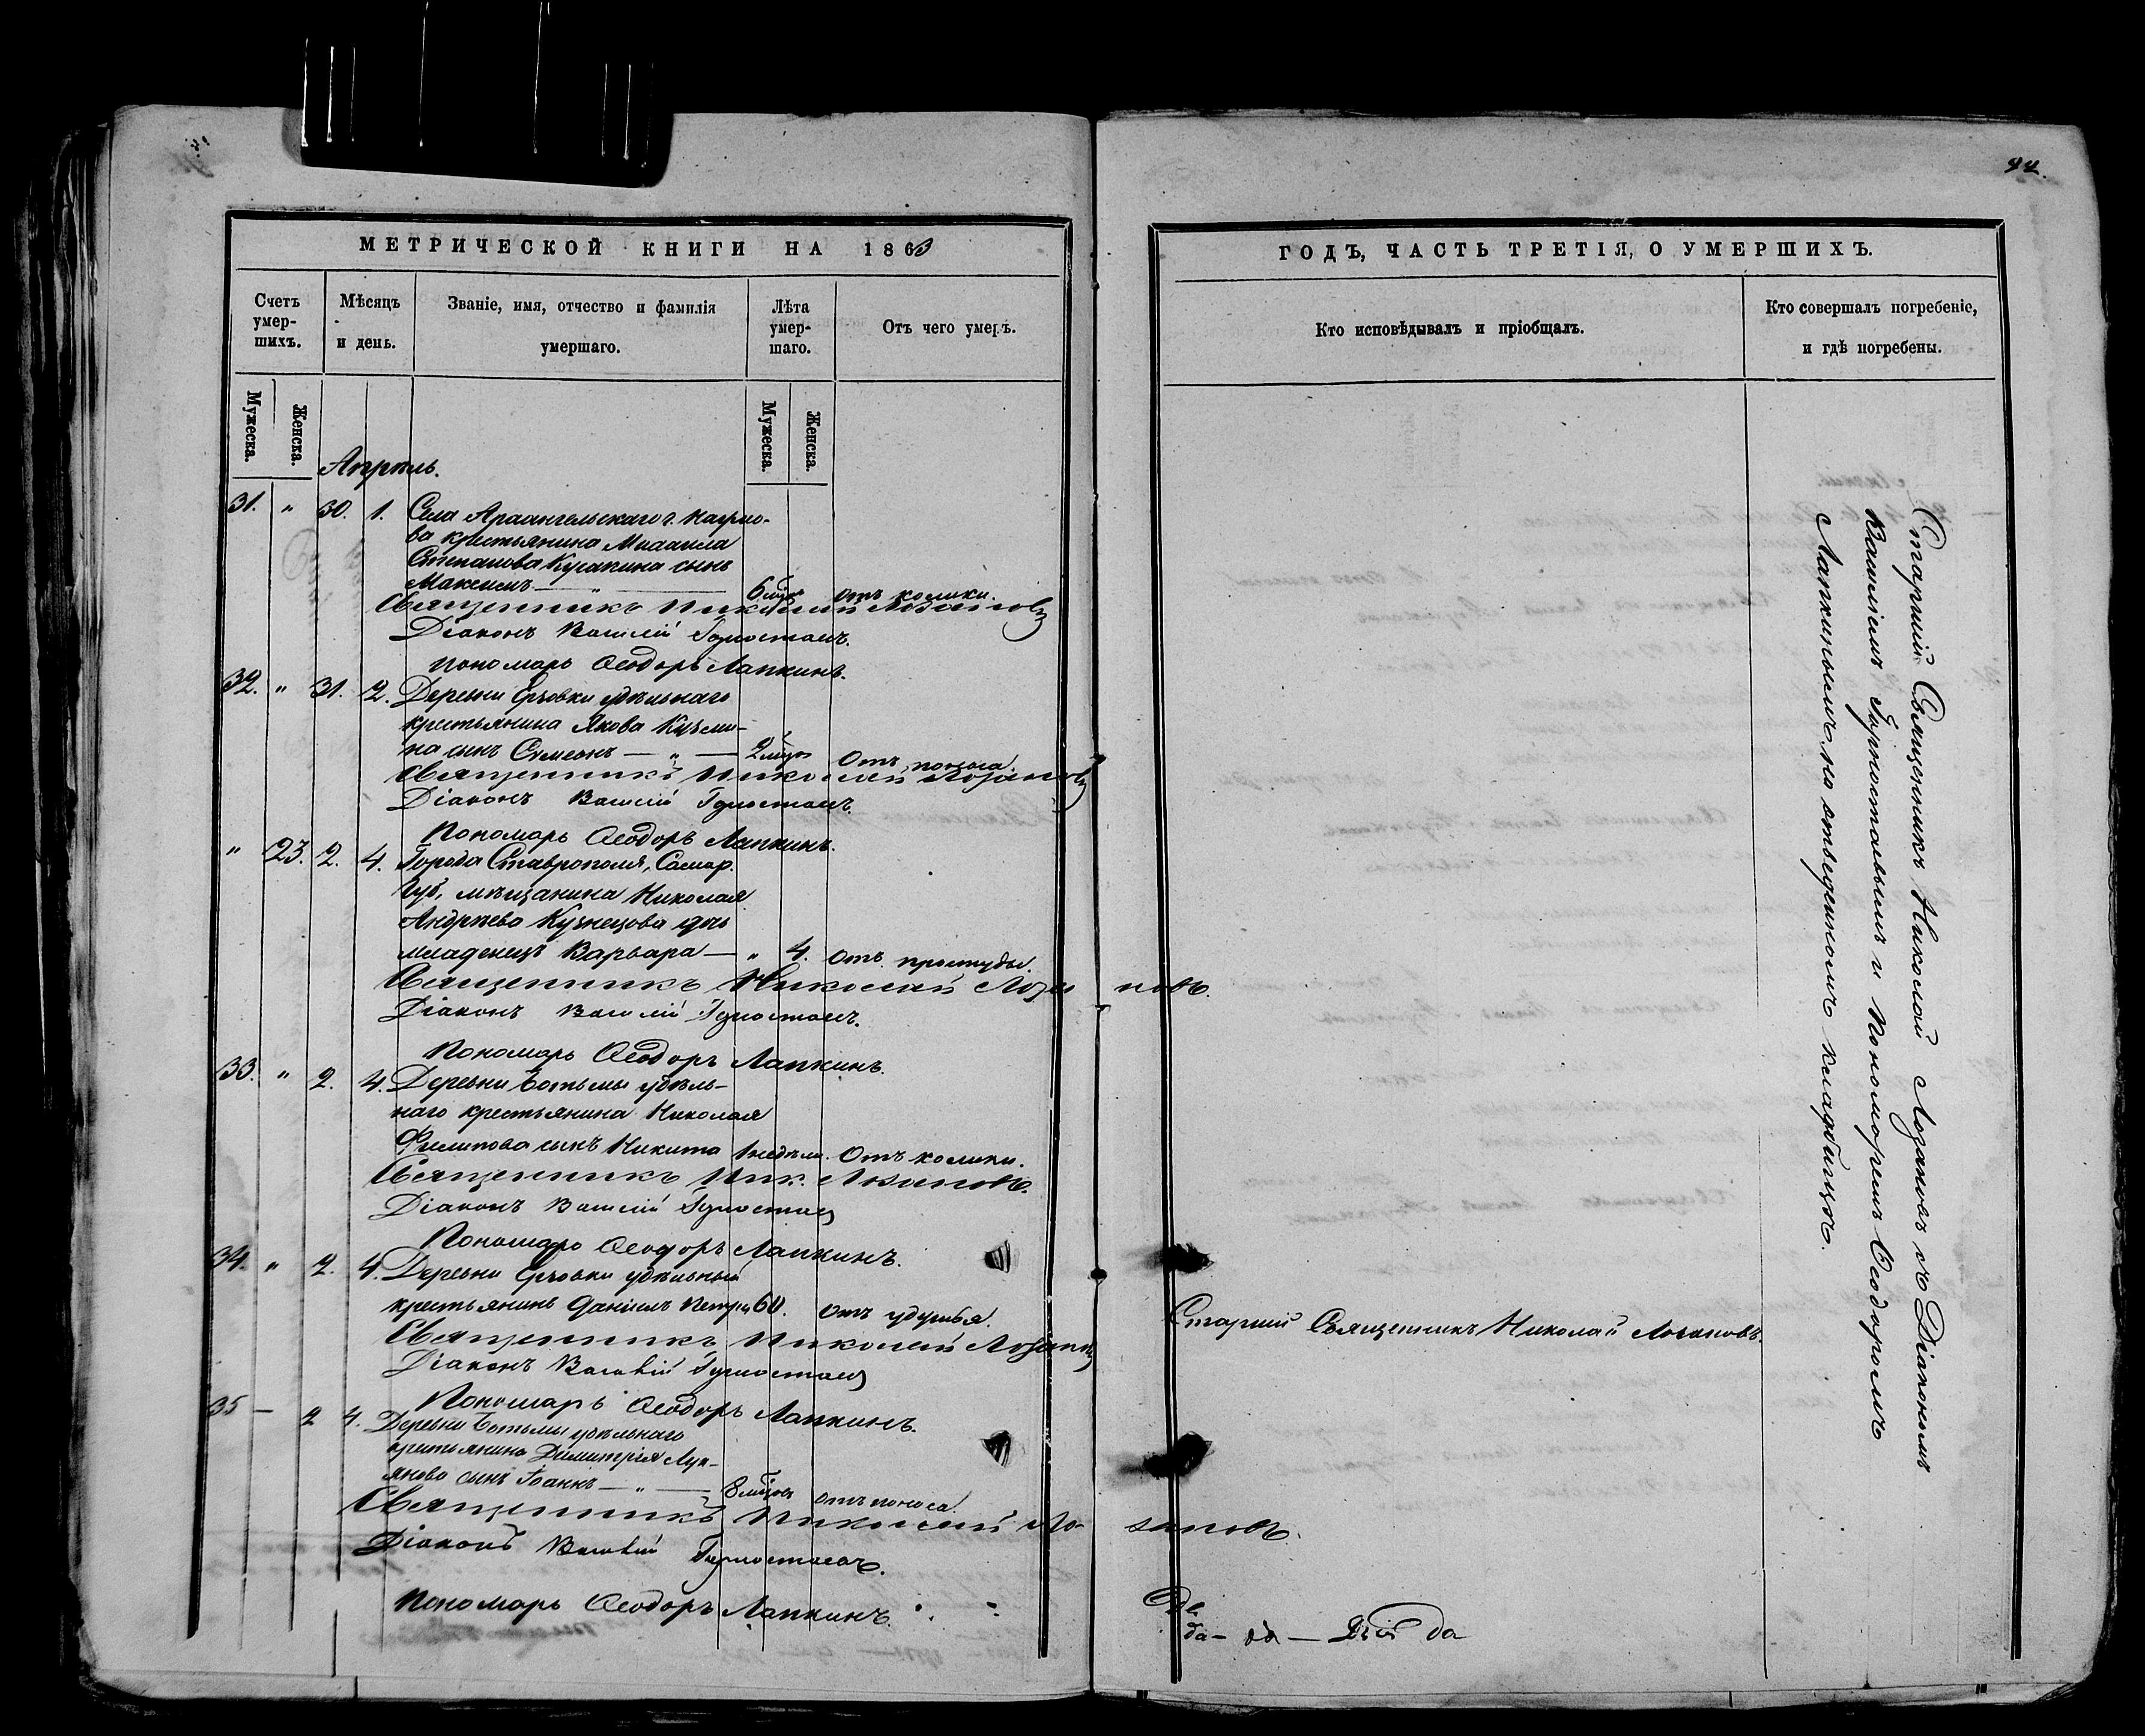 94.
МЕТРИЧЕСКОЙ КНИГИ НА 1863
Счетъ умер-шихъ.
Мѣсяцъ и день.
Званіе, имя, отчество и фамилія умершаго.
Лѣта умер-шаго.
Отъ чего умеръ.
Мужеска.
Женска.
Мужеска.
Женска.
Апрѣль.
31. " 30. 1. Села Архангельскаго г.
крестьянина Михаила
Степанова Кусакина сынъ
Максимъ — " — 6 мцъ отъ колики.
Священникъ Николай Лозановъ
Діаконъ Василій Горностаевъ.
Пономарь Ѳеодоръ Лапкинъ.
32. " 31. 2. Деревни Ерзовки удѣльнаго
крестьянина Якова Кузьми-
на сынъ Симеонъ — " — 2 мцъ Отъ поноса.
Священникъ Николай Лозановъ
Діаконъ Василій Горностаевъ.
Пономарь Ѳеодоръ Лапкинъ.
" 23. 2. 4. Города Ставрополя, Самар.
Губ. мѣщанина Николая
Андреева Кузнецова дочь
младенецъ Варвара — " 4. Отъ простуды.
Священникъ Николай Лозановъ.
Діаконъ Василій Горностаевъ.
Пономарь Ѳеодоръ Лапкинъ.
33. " 2. 4. Деревни Ботьмы удѣль-
наго крестьянина Николая
Филипова сынъ Никита недѣли. Отъ колики.
Священникъ Ник. Лозановъ.
Діаконъ Василій Горностаевъ
Пономарь Ѳеодоръ Лапкинъ.
34. " 2. 4. Деревни Ерзовки удѣльный
крестьянинъ Даніилъ Петровъ 60. Отъ удушья.
Священникъ Николай Лозановъ
Діаконъ Василій Горностаевъ
Пономарь Ѳеодоръ Лапкинъ.
35 — 2 4. Деревни Ботьмы удѣльнаго
крестьянина Димитрія Лук-
янова сынъ Іоаннъ — " — 8 мцовъ отъ поноса.
Священникъ Николай Лозановъ.
Діаконъ Василій Горностаевъ.
Пономарь Ѳеодоръ Лапкинъ.
ГОДЪ, ЧАСТЬ ТРЕТІЯ, О УМЕРШИХЪ.
Кто исповѣдывалъ и пріобщалъ.
Кто совершалъ погребеніе, и гдѣ погребены.
Старшій Священникъ Николай Лозановъ съ Діакономъ
Василіемъ Горностаевымъ и Пономаремъ Ѳеодоромъ
Лапкинымъ на отведенномъ кладбищѣ.
Старшій Священникъ Николай Лозановъ